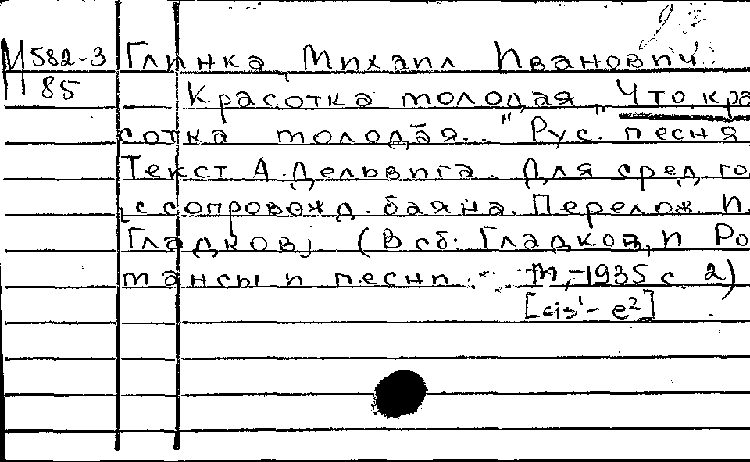 М582-3 Глинка, Михаил Иванович
П 85 Красотка молодая. „Что кра
сотка молодая.." Рус. песня
Текст А. Дельвига. Для сред. го
[с сопровожд. баяна. Перелож. П.
Гладков]. (В сб: Гладков, П Ро
мансы и песни. М,-1935 с 2)
[cis¹- e²]